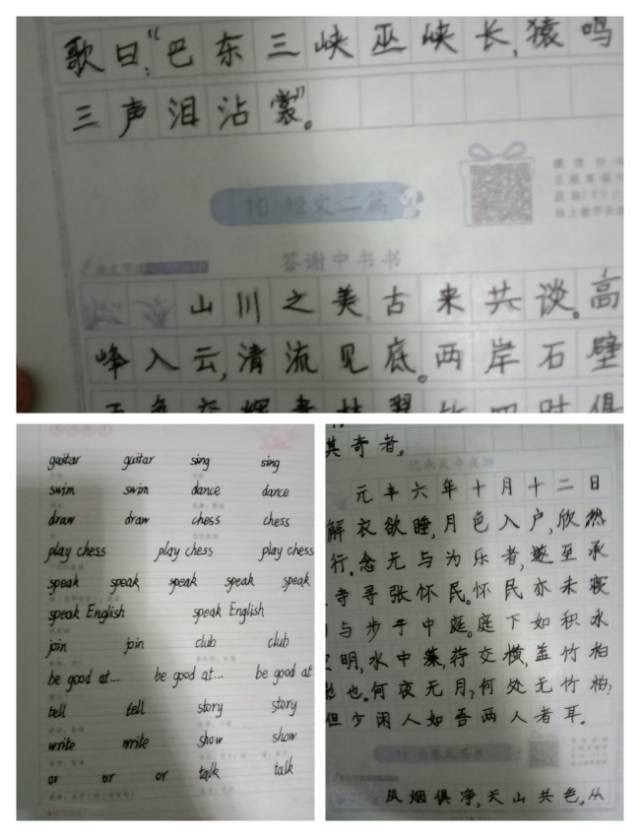 歌曰:“巴东三峡巫峡长,猿鸣
三声泪沾裳”。
10 短文二篇
答谢中书书
山川之美,古来共谈。高
峰入云,清流见底。两岸石壁
guitar guitar sing sing
swim swim dance dance
draw draw chess chess
play chess play chess play chess
speak speak speak speak speak
speak English speak English
join join club club
be good at... be good at... be good at
tell tell story story
write write show show
or or or talk talk
其奇者。
记承天寺夜游
元丰六年十月十二日
解衣欲睡,月色入户,欣然
行。念无与为乐者,遂至承
寺寻张怀民。怀民亦未寝
与步于中庭。庭下如积水
明,水中藻,荇交横,盖竹柏
也。何夜无月?何处无竹柏?
但少闲人如吾两人者耳。
风烟俱净,天山共色。从